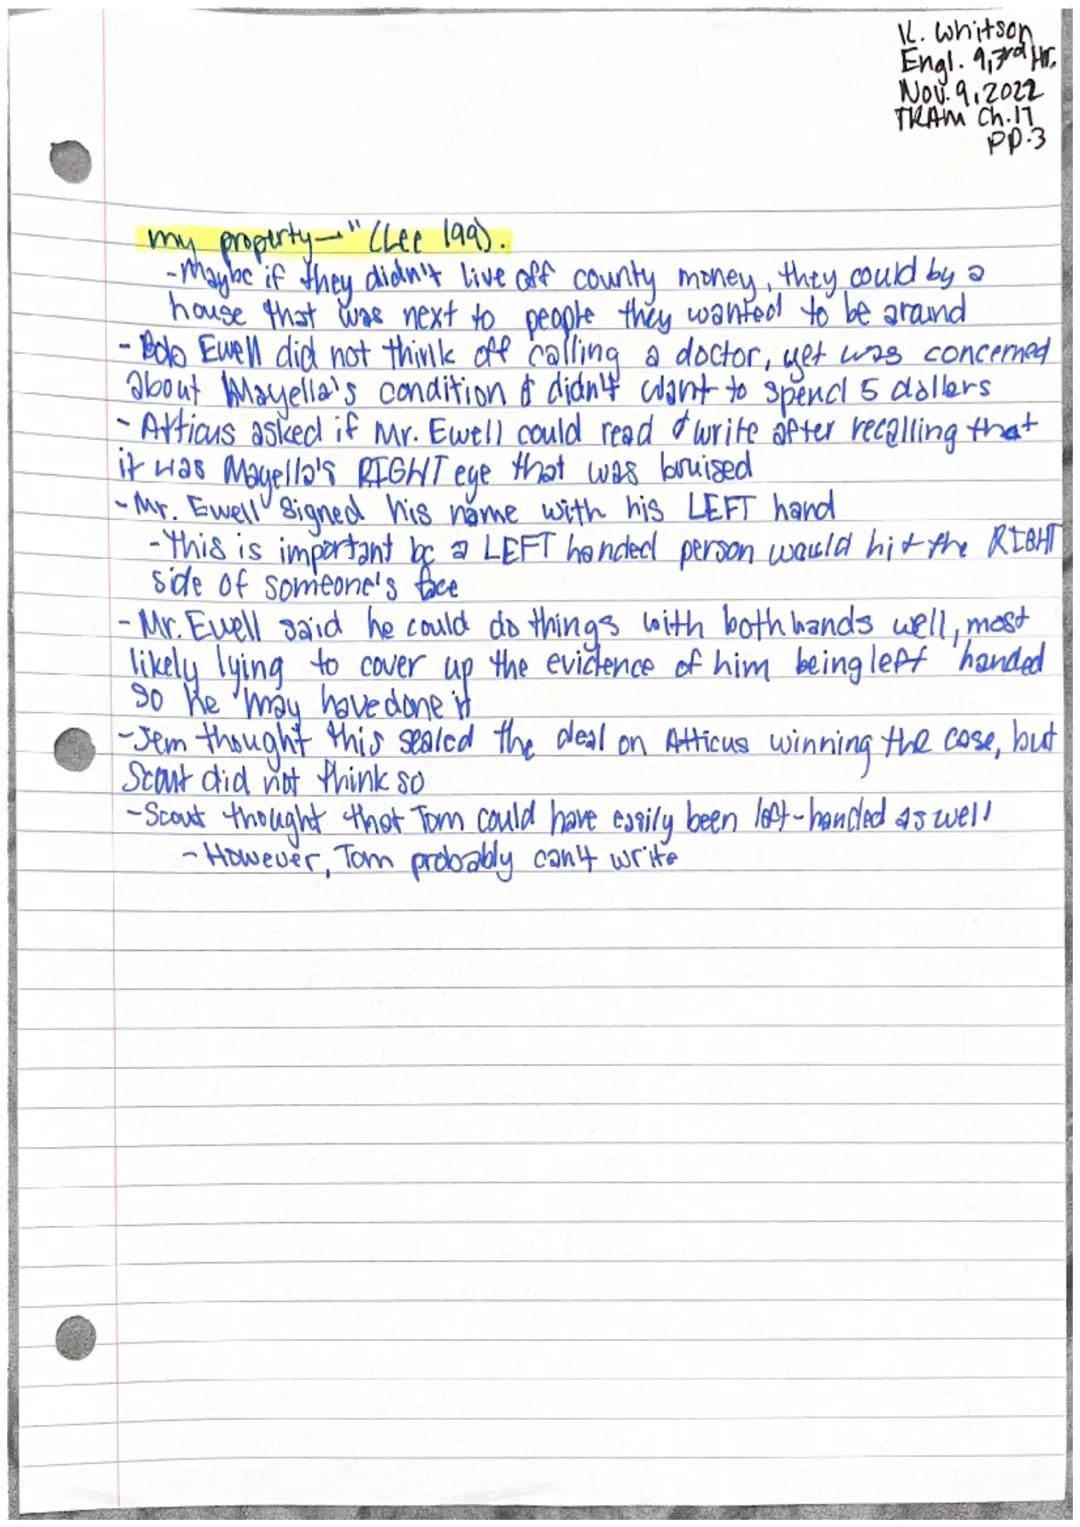 K. Whitson
Engl. 9, 3rd Hr.
Nov. 9, 2022
TKAM Ch. 17
pp. 3
my property—" (Lee 199).
-Maybe if they didn't live off county money, they could by a
house that was next to people they wanted to be around
- Bob Ewell did not think off calling a doctor, yet was concerned
about Mayella's condition & didn't want to spend 5 dollars
- Atticus asked if Mr. Ewell could read & write after recalling that
it was Mayella's RIGHT eye that was bruised
- Mr. Ewell signed his name with his LEFT hand
- This is important bc a LEFT handed person would hit the RIGHT
side of someone's face
- Mr. Ewell said he could do things with both hands well, most
likely lying to cover up the evidence of him being left handed
so he may have done it
- Jem thought this sealed the deal on Atticus winning the case, but
Scout did not think so
- Scout thought that Tom could have easily been left-handed as well
- However, Tom probably can't write